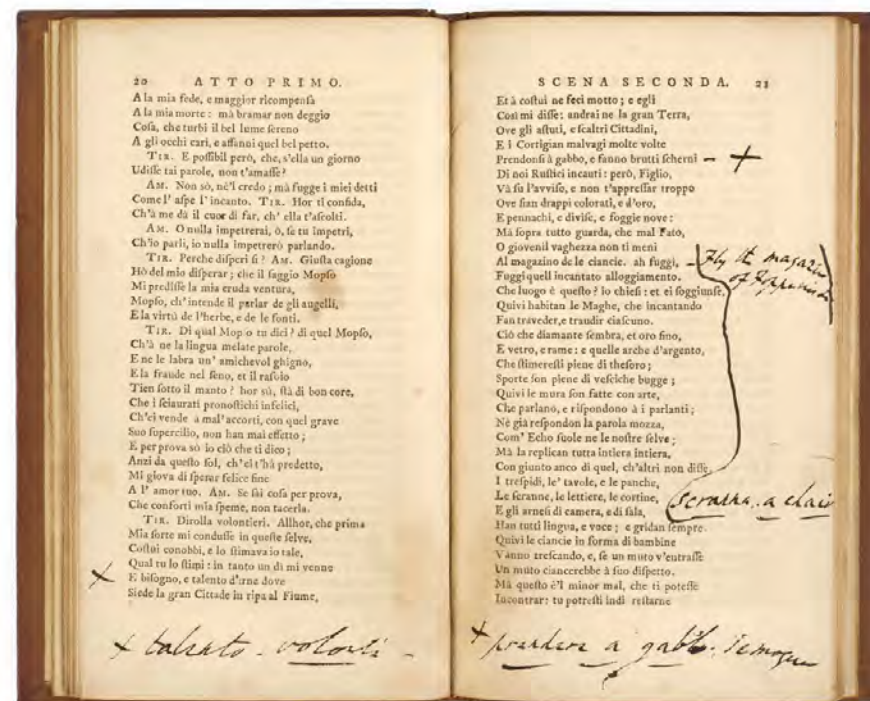 20 ATTO PRIMO.
A la mia fede, e maggior ricompenſa
A la mia morte: mà bramar non deggio
Coſa, che turbi il bel lume ſereno
A gli occhi cari, e affanni quel bel petto.
TIR. E poſſibil però, che, s'ella un giorno
Udiſſe tai parole, non t'amaſſe?
AM. Non sò, nè'l credo; mà fugge i miei detti
Come l' aſpe l' incanto. TIR. Hor ti confida,
Ch'à me dà il cuor di far, ch' ella t'aſcolti.
AM. O nulla impetrerai, ò, ſe tu impetri,
Ch'io parli, io nulla impetrerò parlando.
TIR. Perche diſperi ſi? AM. Giuſta cagione
Hò del mio diſperar; che il ſaggio Mopſo
Mi prediſſe la mia cruda ventura,
Mopſo, ch' intende il parlar de gli augelli,
E la virtù de l'herbe, e de le fonti.
TIR. Di qual Mopſo tu dici? di quel Mopſo,
Ch'à ne la lingua melate parole,
E ne le labra un' amichevol ghigno,
E la fraude nel ſeno, et il raſoio
Tien ſotto il manto? hor sù, ſtà di bon core,
Che i ſciaurati pronoſtichi infelici,
Ch'ei vende à mal'accorti, con quel grave
Suo ſupercilio, non han mai effetto;
E per prova sò io ciò che ti dico;
Anzi da queſto ſol, ch'ei t'hà predetto,
Mi giova di ſperar felice fine
A l' amor tuo. AM. Se ſai coſa per prova,
Che conforti mia ſpeme, non tacerla.
TIR. Dirolla volontieri. Allhor, che prima
Mia ſorte mi conduſſe in queſte ſelve,
Coſtui conobbi, e lo ſtimava io tale,
Qual tu lo ſtimi: in tanto un dì mi venne
+ E biſogno, e talento d'irne dove
Siede la gran Cittade in ripa al Fiume,
+ talento - volontà -
SCENA SECONDA. 21
Et à coſtui ne feci motto; e egli
Così mi diſſe: andrai ne la gran Terra,
Ove gli aſtuti, e ſcaltri Cittadini,
E i Cortigian malvagi molte volte
Prendonſi à gabbo, e fanno brutti ſcherni - +
Di noi Ruſtici incauti: però, Figlio,
Và ſu l'avviſo, e non t'appreſſar troppo
Ove ſian drappi colorati, e d'oro,
E pennachi, e diviſe, e foggie nove:
Mà ſopra tutto guarda, che mal Fato,
O giovenil vaghezza non ti meni
Al magazino de le ciancie. ah fuggi, - Fly the magazine
Fuggi quell incantato alloggiamento. of
Che luogo è queſto? io chieſi: et ei ſoggiunſe,
Quivi habitan le Maghe, che incantando
Fan traveder, e traudir ciaſcuno.
Ciò che diamante ſembra, et oro fino,
E vetro, e rame: e quelle arche d'argento,
Che ſtimereſti piene di theſoro;
Sporte ſon piene di veſciche bugge;
Quivi le mura ſon fatte con arte,
Che parlano, e riſpondono à i parlanti;
Nè già reſpondon la parola mozza,
Com' Echo ſuole ne le noſtre ſelve;
Mà la replican tutta intiera intiera,
Con giunto anco di quel, ch'altri non diſſe,
I treſpidi, le' tavole, e le panche,
Le ſcranne, le lettiere, le cortine, scranna. a chair
E gli arneſi di camera, e di ſala,
Han tutti lingua, e voce; e gridan ſempre.
Quivi le ciancie in forma di bambine
Vanno treſcando, e, ſe un muto v'entraſſe
Un muto ciancerebbe à ſuo diſpetto.
Mà queſto è'l minor mal, che ti poteſſe
Incontrar: tu potreſti indi reſtarne
+ prendere a gabbo.